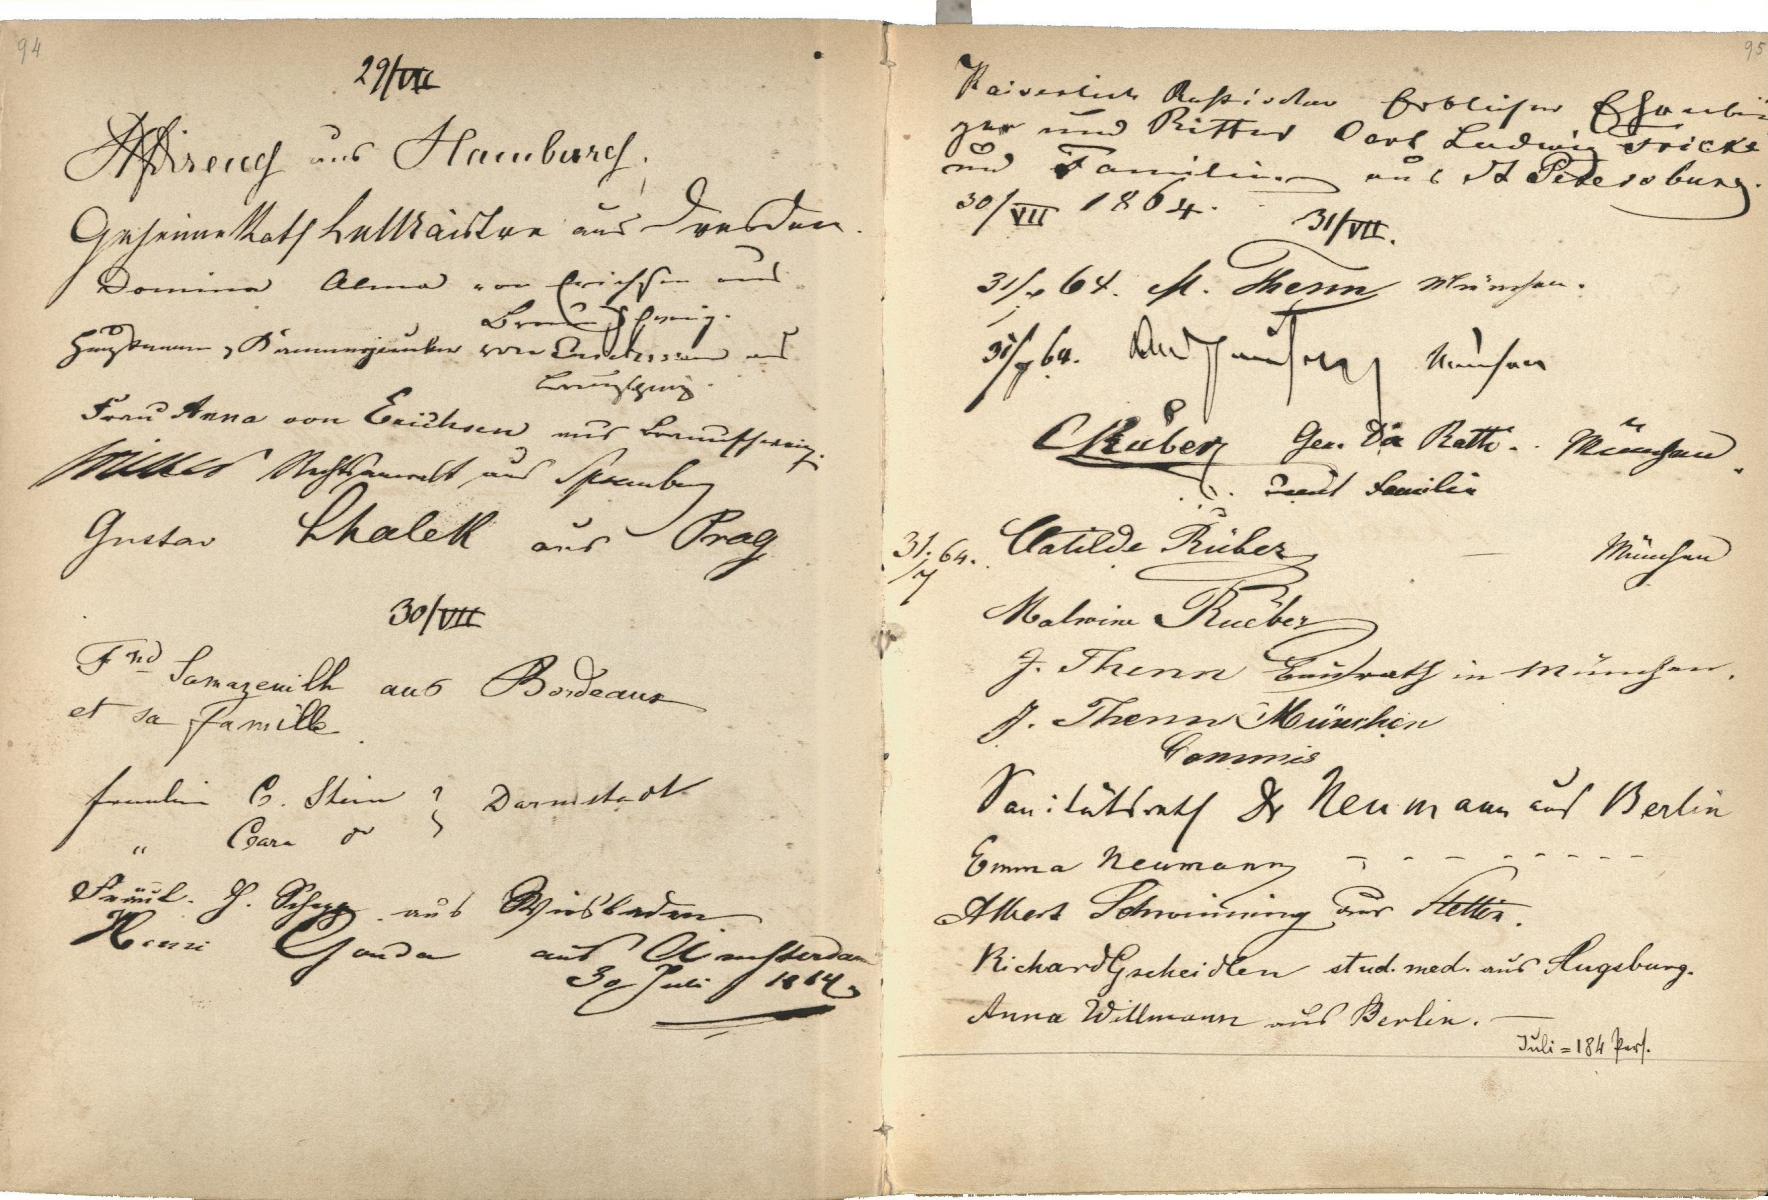 94
29/VII
aus Hamburg.
Geheime Rath aus Dresden.
Domina Alma von Erichsen aus
Braunschweig.
Kammerjunker von aus
Braunschweig.
Frau Anna von Erichsen aus Braunschweig.
Rechtsanwalt aus Spremberg
Gustav Chalek aus Prag
30/VII
Fnd Samazeuilh aus Bordeaux
et sa famille
Fraulein C. Stein } Darmstadt
" Clara do
Fräul. H. aus Wiesbaden
Henri Gouda aus Amsterdam
30 Juli 1864
95
Kaiserlich Russischer Erblicher Ehrenbür-
ger und Ritter Carl Ludwig Fricke
und Familie aus St Petersburg.
30/VII 1864.
31/VII.
31/7 64. M. Thenn München.
31/7 64. München
C Rüber Gen. Dir Rath. München
mit Familie
31./7 64. Clotilde Rüber — München
Malwine Rueber
J. Thenn Baurath in München.
J. Thenn München
Commis
Sanitätsrath Dr Neumann aus Berlin
Emma Neumann - - - - - - - -
Albert Schwinning aus Stettin.
Richard Gscheidlen stud. med. aus Augsburg.
Anna Willmann aus Berlin. —
Juli = 184 Pers.